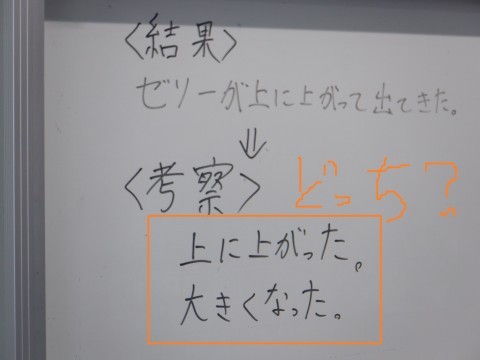 〈結果〉
ゼリーが上に上がって出てきた。
⇓
〈考察〉 どっち?
上に上がった。
大きくなった。